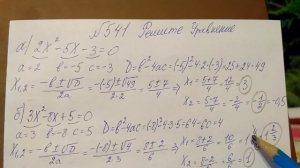 №541 Решите уравнение
а) 2x² -5x -3 = 0
a = 2 b = -5 c = -3 D = b² - 4ac = (-5)² - 4·2·(-3) = 25 + 24 = 49
x₁,₂ = (-b ± √D)/2a = (-(-5) ± √49)/(2·2) = (5 ± 7)/4 x₁ = (5+7)/4 = 12/4 = 3
x₂ = (5-7)/4 = -2/4 = -1/2 = -0,5
б) 3x² - 8x + 5 = 0
a = 3 b = -8 c = 5 D = b² - 4ac = (-8)² - 4·3·5 = 64 - 60 = 4
x₁,₂ = (-b ± √D)/2a = (-(-8) ± √4)/(2·3) = (8 ± 2)/6 x₁ = (8+2)/6 = 10/6 = 1
x₂ = (8-2)/6 = 6/6 = 1